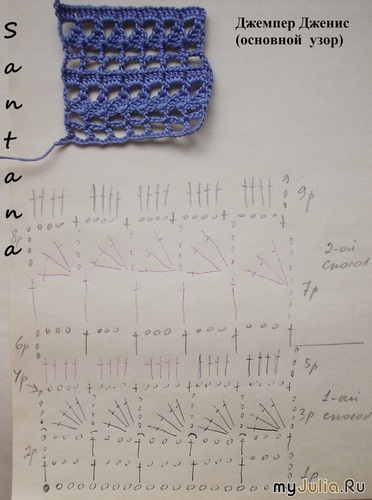 Джемпер Дженис
(основной узор)
Santana
9р
8р
2-ой
способ
7р
6р
5р
4р
1-ый
способ
3р
2р
1р
myJulia.Ru